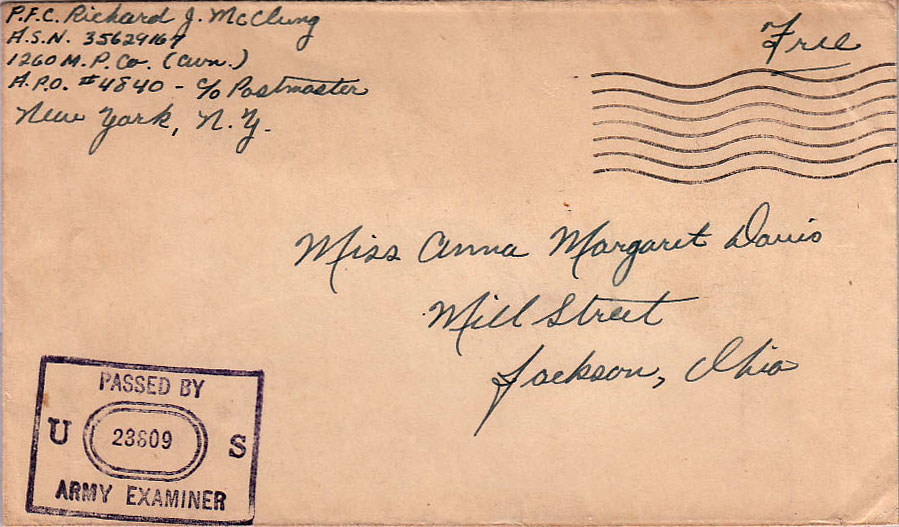 P.F.C. Richard J. McClung
A.S.N. 35629167
1260 M.P. Co. (Avn.)
A.P.O. #4840 - c/o Postmaster
New York, N.Y.
Free
Miss Anna Margaret Davis
Mill Street
Jackson, Ohio
PASSED BY
U 23609 S
ARMY EXAMINER